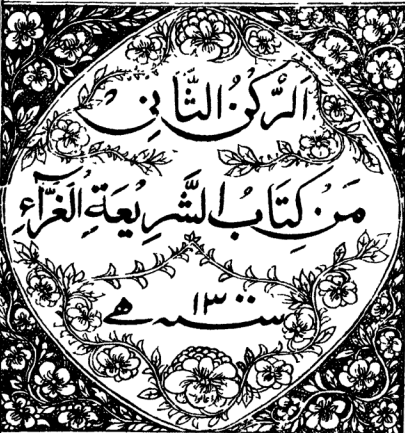 اَلرُّكنُ الثَّانِي
مَنْ كِتَابُ الشَّرِيعَةِ الغَرَّآءِ
سنه ١٣٠٠ هـ